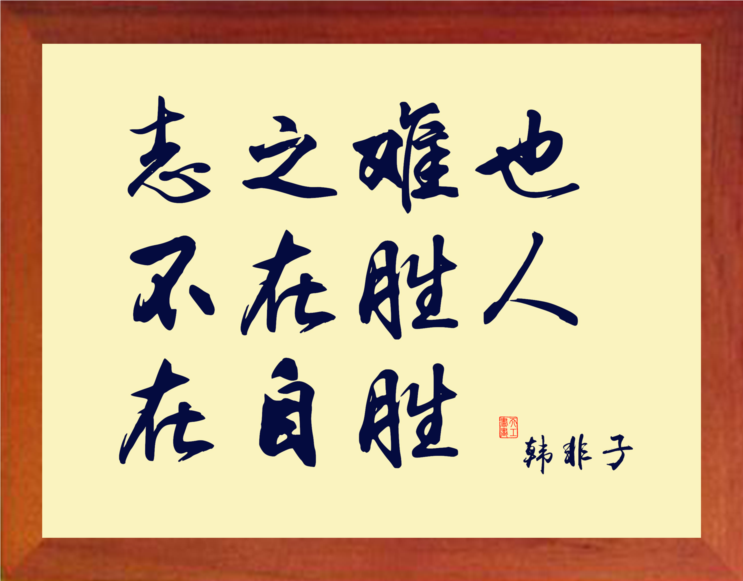 志之难也
不在胜人
在自胜
韩非子